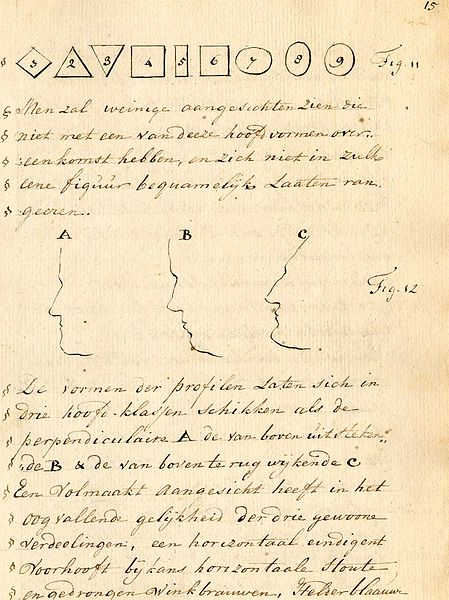 15
1 2 3 4 5 6 7 8 9 Fig. 11
Men zal weinige aangesichten zien die
niet met een van deeze hoofdvormen over-
:eenkomst hebben, en zich niet in zulk
eene figuur bequamelijk Laaten ran.
geeren.
A B C
Fig. 12
De vormen der profilen Laten sich in
drie hoofd-klassen schikken als de
perpendiculaire A de van boven úitsteken.
:de B & de van boven te rug wijkende C
Een Volmaakt Aangesicht heeft in het
oogvallende gelijkheid der drie gewoone
verdeelingen, een horizontaal eindigent
Voorhooft bijkans horizontaale Stoute
en gedrongen winkbrauwen, Helderblaauw